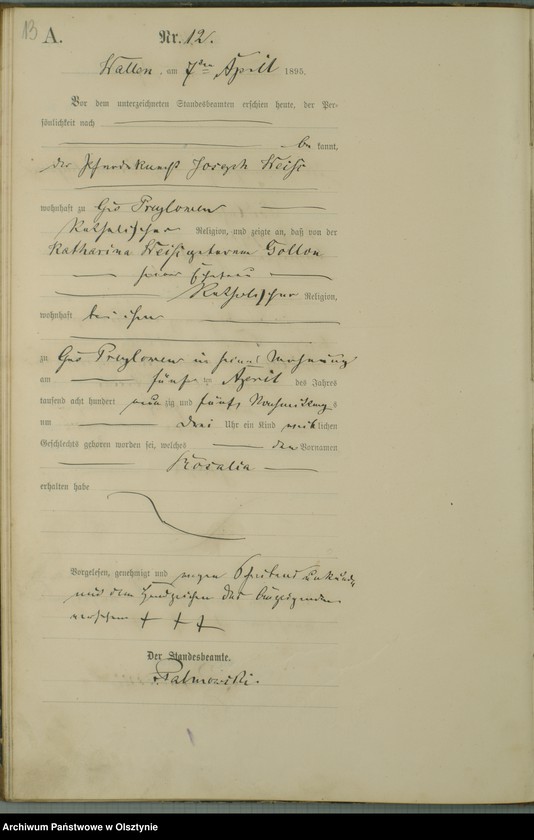 13 A. Nr. 12.
Wallen, am 7ten April 1895.
Vor dem unterzeichneten Standesbeamten erschien heute, der Per-
sönlichkeit nach
be kannt,
der Pferdeknecht Joseph Weiß
wohnhaft zu Gut Preylowen
Katholischer Religion, und zeigte an, daß von der
Katharina Weiß geborenen Tollon
seiner Ehefrau
Katholischer Religion,
wohnhaft bei ihm
zu Gut Preylowen in seiner Wohnung
am fünf ten April des Jahres
tausend acht hundert neun zig und fünf Nachmittags
um drei Uhr ein Kind weiblichen
Geschlechts geboren worden sei, welches den Vornamen
Rosalia
erhalten habe
Vorgelesen, genehmigt und wegen Schreibens unkunde
mit dem Handzeichen des Anzeigenden
versehen + + +
Der Standesbeamte.
Palmowski.
Archiwum Państwowe w Olsztynie